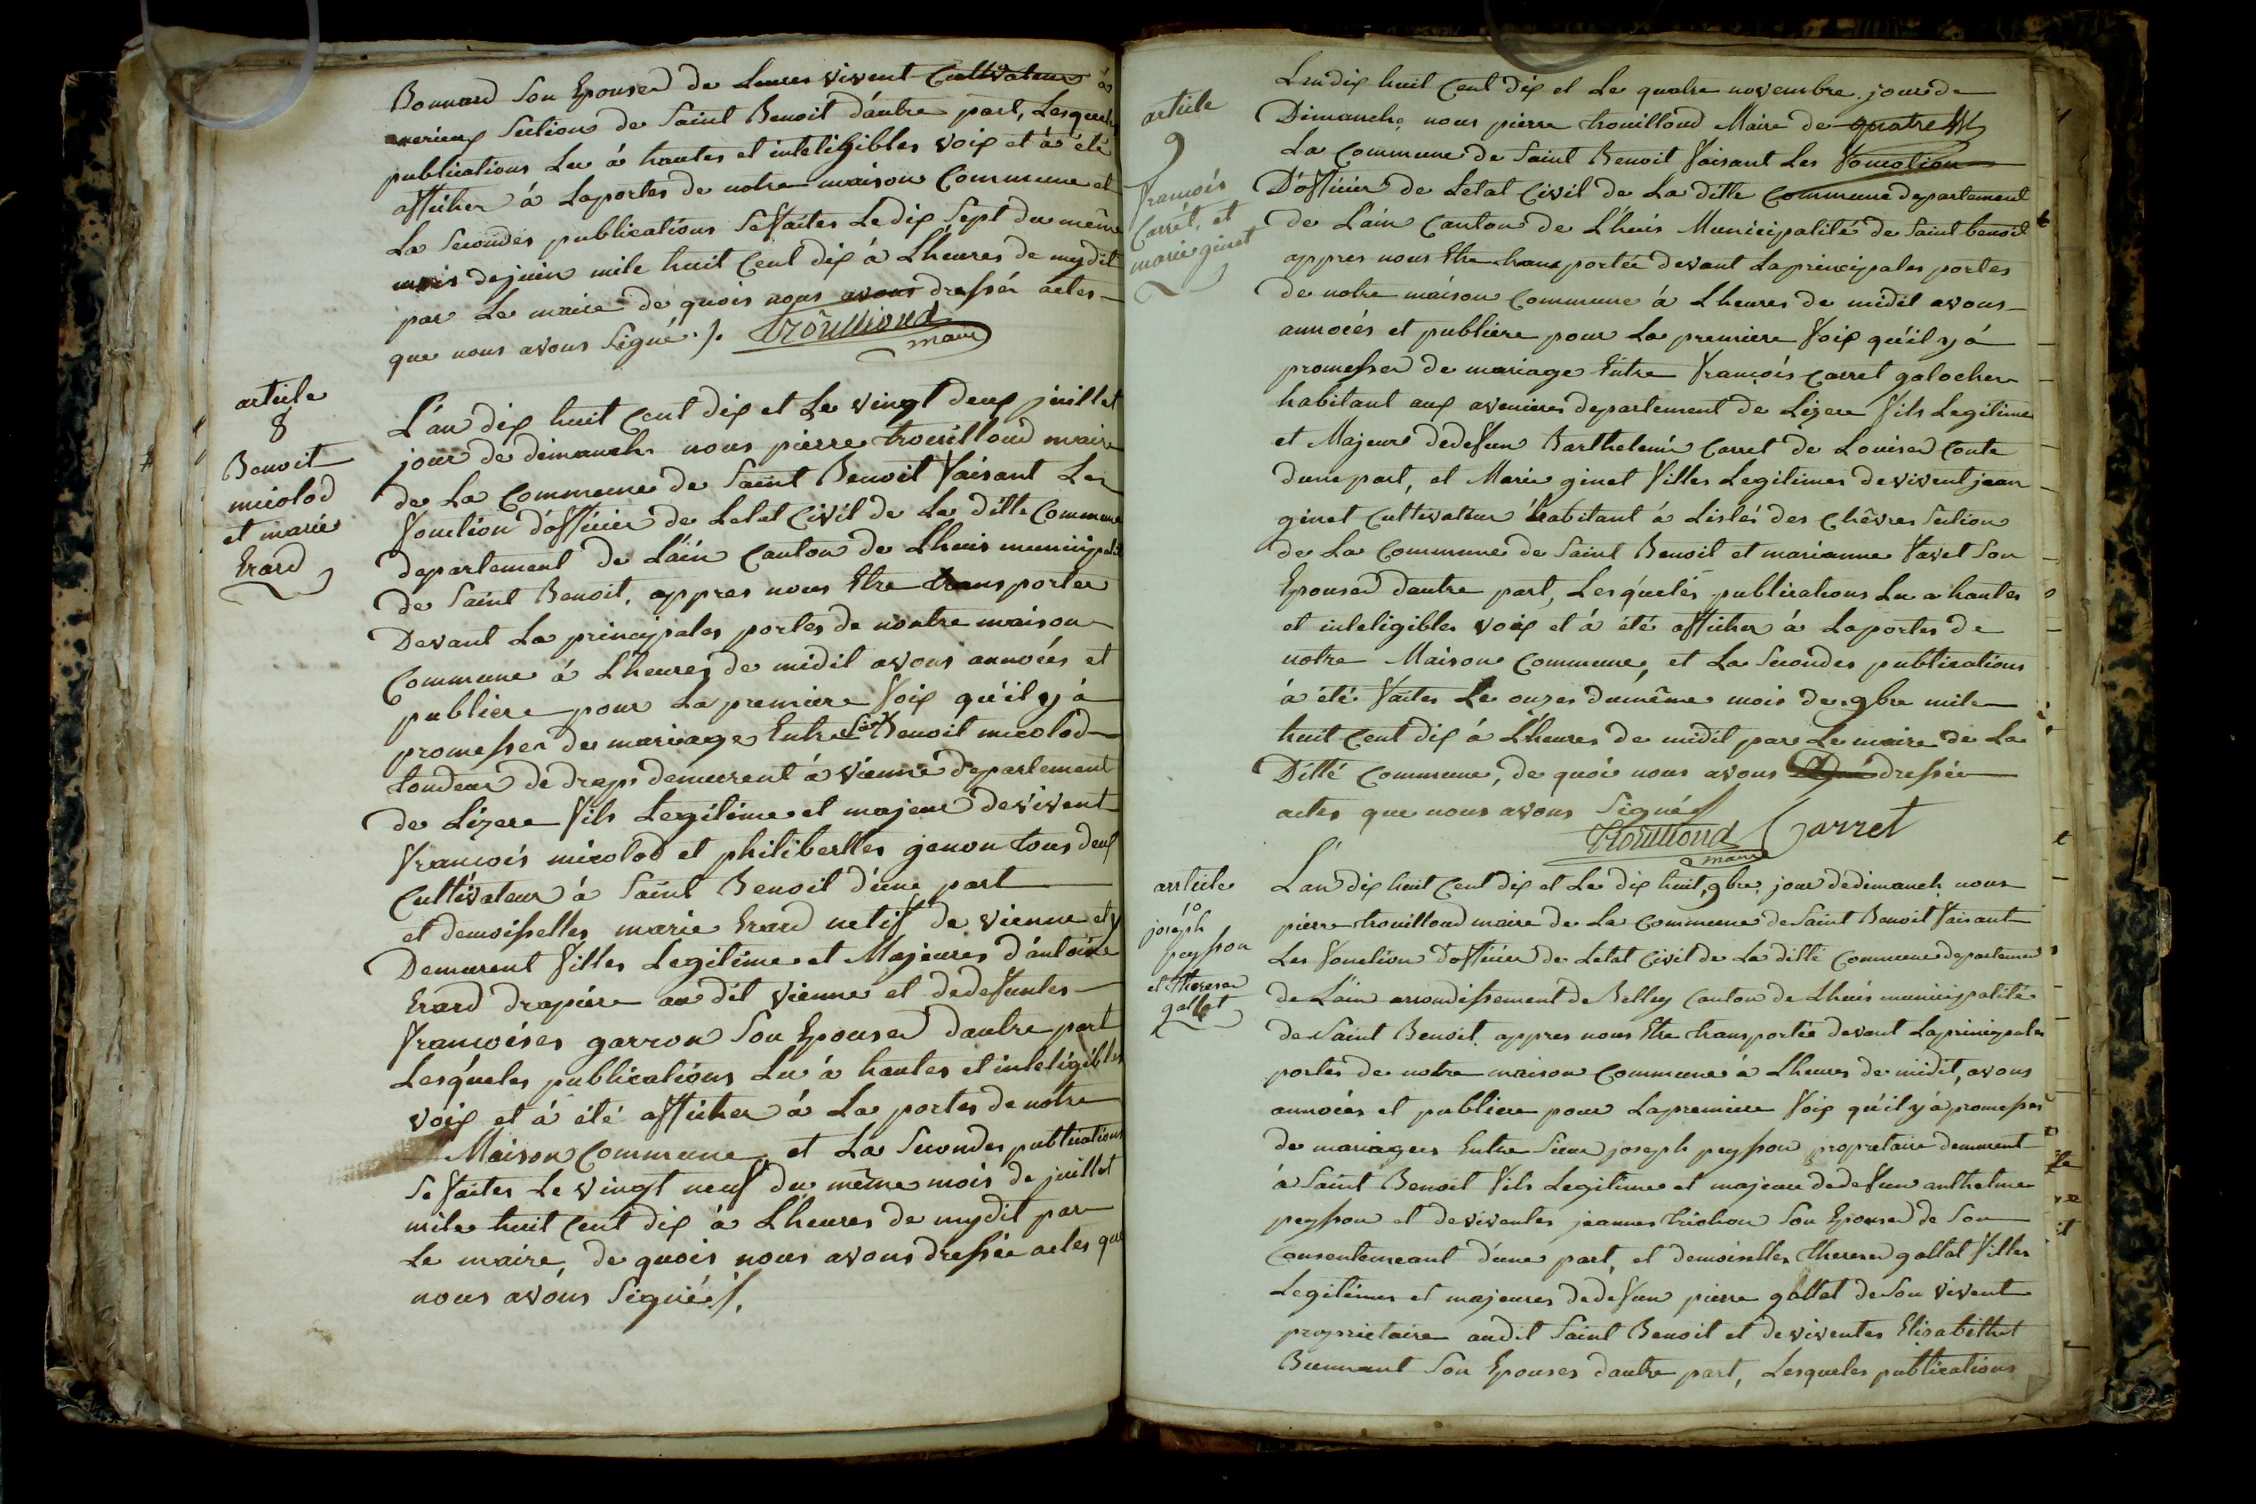 Bonnard Son Epouser de Leurs vivent Cultivateur à
merieux Section de Saint Benoit d'autre part, Lesqueles
publications Lu à hautes et inteligibles voix et à été
afficher à Laportes de notre maison Commune et
La Secondes publications Se faites Le dix Sept du même
mois dejuin mile huit Cent dix à Lheures de mydit
par Le maire de quois nous avons dressér actes
que nous avons Signé ./. Trouilloud
maire
article
8
Benoit
micolod
et marie
Erard
L'an dix huit Cent dix et Le vingt deux juillet
jour de dimanch nous pierre trouilloud maire
de La Commune de Saint Benoit faisant Les
fonction d'officier de Letat Civil de La ditte Commune
departement de L'ain Canton de Lhuis municipalité
de Saint Benoit, appres nous Etre transporter
Devant La principales portes de nontre maison
Commune à Lheures de midit avons annoées et
publiere pour La premiere foix qu'il y à
promesser de mariage Entre Sieur Benoit micolod
tondeur de draps demeurent à Vienne departement
de Lizere fils Legitime et majeur de vivent
francois micolod et philibertes genon tous deux
Cultivateur à Saint Benoit d'une part
et demoisselles marie Erard netif de vienne et y
Demeurent filles Legitime et Majeures d'antoine
Erard drapiere au dit Vienne et dedefuntes
francoises garron Son Epouser dautre part
Lesqueles publications Lu à hautes et inteligibles
voix et à été afficher à La portes de notre
Maison Commune, et La Secondes publications
Se faites Le vingt neuf du même mois de juillet
mile huit Cent dix à Lheures de mydit par
Le maire, de quois nous avons dressée actes que
nous avons Signé ./.
article
9
francois
Carret, et
marie ginet
Lan dix huit Cent dix et Le quatre novembre jour de
Dimanche, nous pierre trouilloud Maire de quatre
La Commune de Saint Benoit faisant Les fonction
D'officier de Letat Civil de La ditte Commune departement
de L'ain Canton de Lhuis Municipalité de Saint benoit
appres nous Etre transportée devant Laprincipales portes
de notre maison Commune à Lheures de midit avons
annoées et publiere pour La premiere foix qu'il y à
promesser de mariage Entre francois Carret galocher
habitant aux avenieres departement de Lizere fils Legitime
et Majeur dedefun Barthelemi Carret de Louiser Conte
dune part, et Marie ginet filles Legitimes de vivent jean
ginet Cultivateur habitant à Lisles des Chêvres Section
de La Commune de Saint Benoit et marianne favet Son
Epouser dautre part, Lesqueles publications Lu a hautes
et inteligibles voix et à été afficher à Laportes de
notre Maison Commune, et La Secondes publications
à été faites Le onzes dumême mois de 9bre mile
huit Cent dix à Lheures de midit par Le maire de La
Ditté Commune, de quoi nous avons dressée
actes que nous avons Signé ./.
Trouilloud Carret
maire
article
10
joseph
peysson
et Thereser
gallet
L'an dix huit Cent dix et Le dix huit 9bre jour dedimanch nous
pierre trouilloud maire de La Commune de Saint Benoit faisant
Les fonction d'officier de Letat Civil de La ditte Commune departement
de L'ain arrondissement de Belley Canton de Lhuis municipalité
de Saint Benoit, appres nous Etre transportée devant Laprincipales
portes de notre maison Commune à Lheures de midit, avons
annoées et publiere pour Lapremiere foix qu'il y à promesser
de mariages Entre Sieur joseph peysson propretaire demeurent
à Saint Benoit fils Legitime et majeur dedefun anthelme
peysson et deviventes jeannes trichon Son Epouser de Son
Consentemeant d'une part, et demoiselles thereser gallet filles
Legitimes et majeures dedefun pierre gallet deSon vivent
proprietaire audit Saint Benoit et deviventes Elisabethet
Buennant Son Epouses dautre part, Lesqueles publications